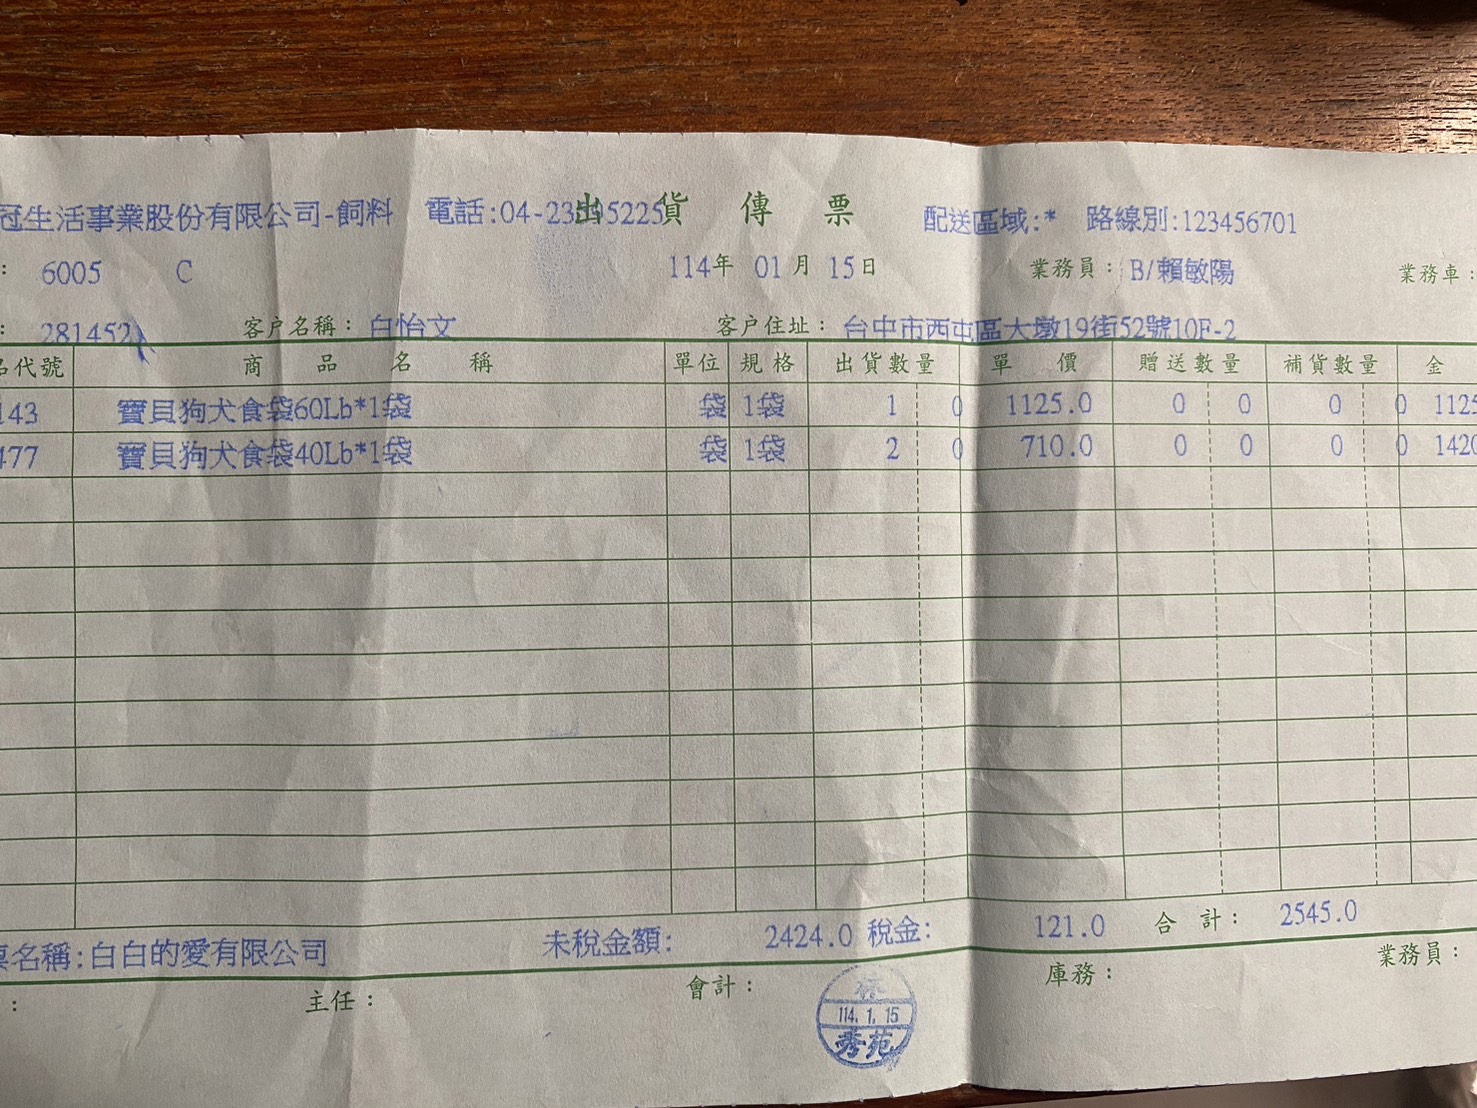 冠生活事業股份有限公司-飼料 電話:04-23 95225 出貨傳票 配送區域:* 路線別:123456701
: 6005 C 114年 01月 15日 業務員: B/賴敏陽 業務車:
: 281452 客戶名稱: 白怡文 客戶住址: 台中市西屯區大墩19街52號10F-2
名代號 商品名稱 單位 規格 出貨數量 單價 贈送數量 補貨數量 金
143 寶貝狗犬食袋60Lb*1袋 袋 1袋 1 0 1125.0 0 0 0 0 1125
477 寶貝狗犬食袋40Lb*1袋 袋 1袋 2 0 710.0 0 0 0 0 1420
票名稱:白白的愛有限公司 未稅金額: 2424.0 稅金: 121.0 合計: 2545.0
: 主任: 會計: 庫務: 業務員:
林
114. 1. 15
秀苑